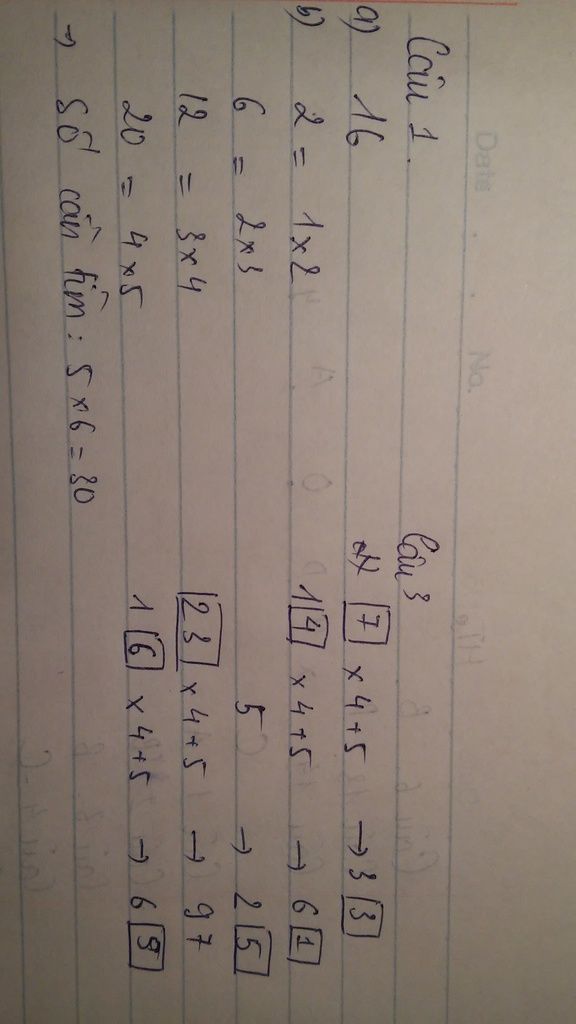 Date . No.
Câu 1.
a) 16
b) 2 = 1 x 2
6 = 2 x 3
12 = 3 x 4
20 = 4 x 5
→ Số cần tìm : 5 x 6 = 30
Câu 3
7 x 4 + 5 → 33
14 x 4 + 5 → 61
5 → 25
23 x 4 + 5 → 97
16 x 4 + 5 → 69